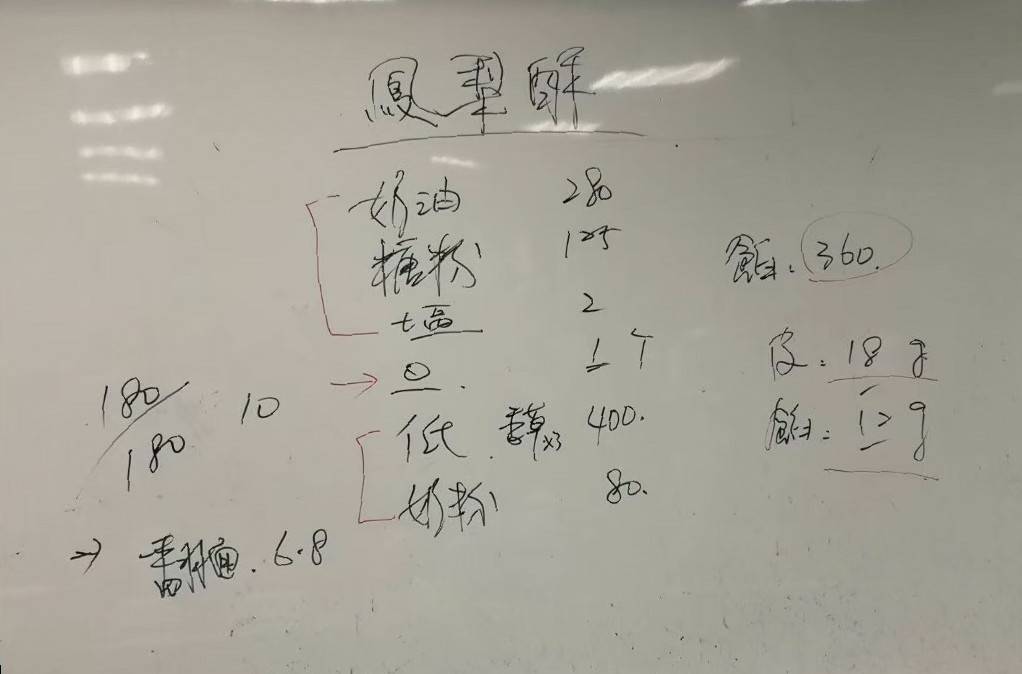 鳳梨酥
奶油 280
糖粉 125
塩 2
① . 1个
低 . 香草x3 400.
奶粉 80.
餡: 360.
皮: 18g
餡: 12g
180/180 10
→ 翻面. 6.8